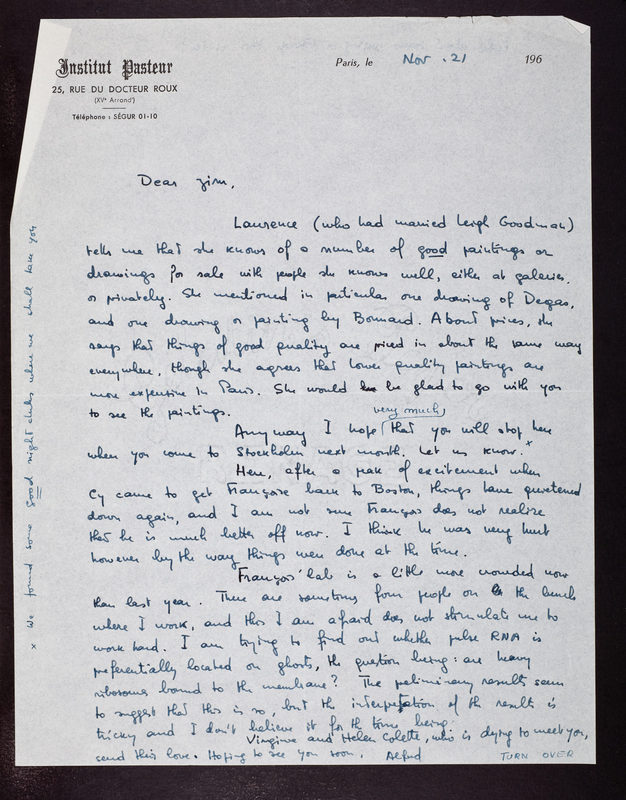 Institut Pasteur
25, RUE DU DOCTEUR ROUX
(XVe Arrondt)
Téléphone : SÉGUR 01-10
Paris, le Nov. 21 196
Dear Jim,
Laurence (who had married Leigh Goodman)
tells me that she knows of a number of good paintings or
drawings for sale with people she knows well, either at galeries,
or privately. She mentioned in particular one drawing of Degas,
and one drawing or painting by Bonnard. About prices, she
says that things of good quality are priced in about the same way
everywhere, though she agrees that lower quality paintings are
more expensive in Paris. She would be glad to go with you
to see the paintings.
very much
Anyway I hope that you will stop here
when you come to Stockholm next month. Let us know. x
Here, after a peak of excitement when
Cy came to get Françoise back to Boston, things have quietened
down again, and I am not sure François does not realize
that he is much better off now. I think he was very hurt
however by the way things were done at the time.
François' lab is a little more crowded now
than last year. There are sometimes four people on the bench
where I work, and this I am afraid does not stimulate me to
work hard. I am trying to find out whether pulse RNA is
preferentially located on ghosts, the question being : are heavy
ribosomes bound to the membrane? The preliminary results seem
to suggest that this is so, but the interpretation of the results is
tricky and I don't believe it for the time being.
Virginia and Helen Colette, who is dying to meet you,
send this love. Hoping to see you soon. Alfred
TURN OVER
x We found some good night clubs where we shall take you